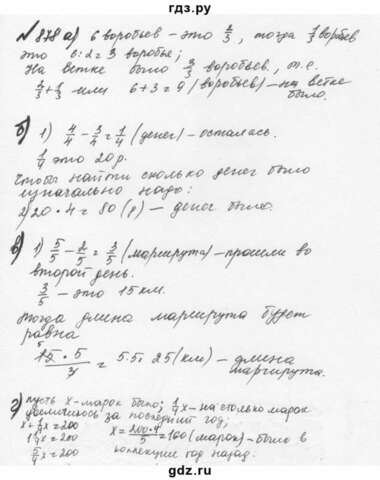 гдз.ру
№ 878 а) 6 воробьев - это 2/3, тогда 1/3 воробьев
это 6:2=3 воробья;
На ветке было 3/3 воробьев, т.е.
2/3+1/3 или 6+3=9 (воробьев) - на ветке
было.
б) 1) 4/4-3/4=1/4 (денег) - осталась.
1/4 это 20р.
Чтобы найти сколько денег было
изначально надо:
2) 20·4=80(р) - денег было.
в) 1) 5/5-2/5=3/5 (маршрута) - прошли во
второй день.
3/5 - это 15км.
Тогда длина маршрута будет
равна
15·5/3 = 5·5=25(км) - длина
маршрута.
г) пусть х-марок было; 1/4х - на столько марок
увеличилось за последний год;
х+1/4х=200 х=200·4/5=160 (марок) - было в
1 1/4х=200 коллекции год назад.
5/4х=200
gdz.ru